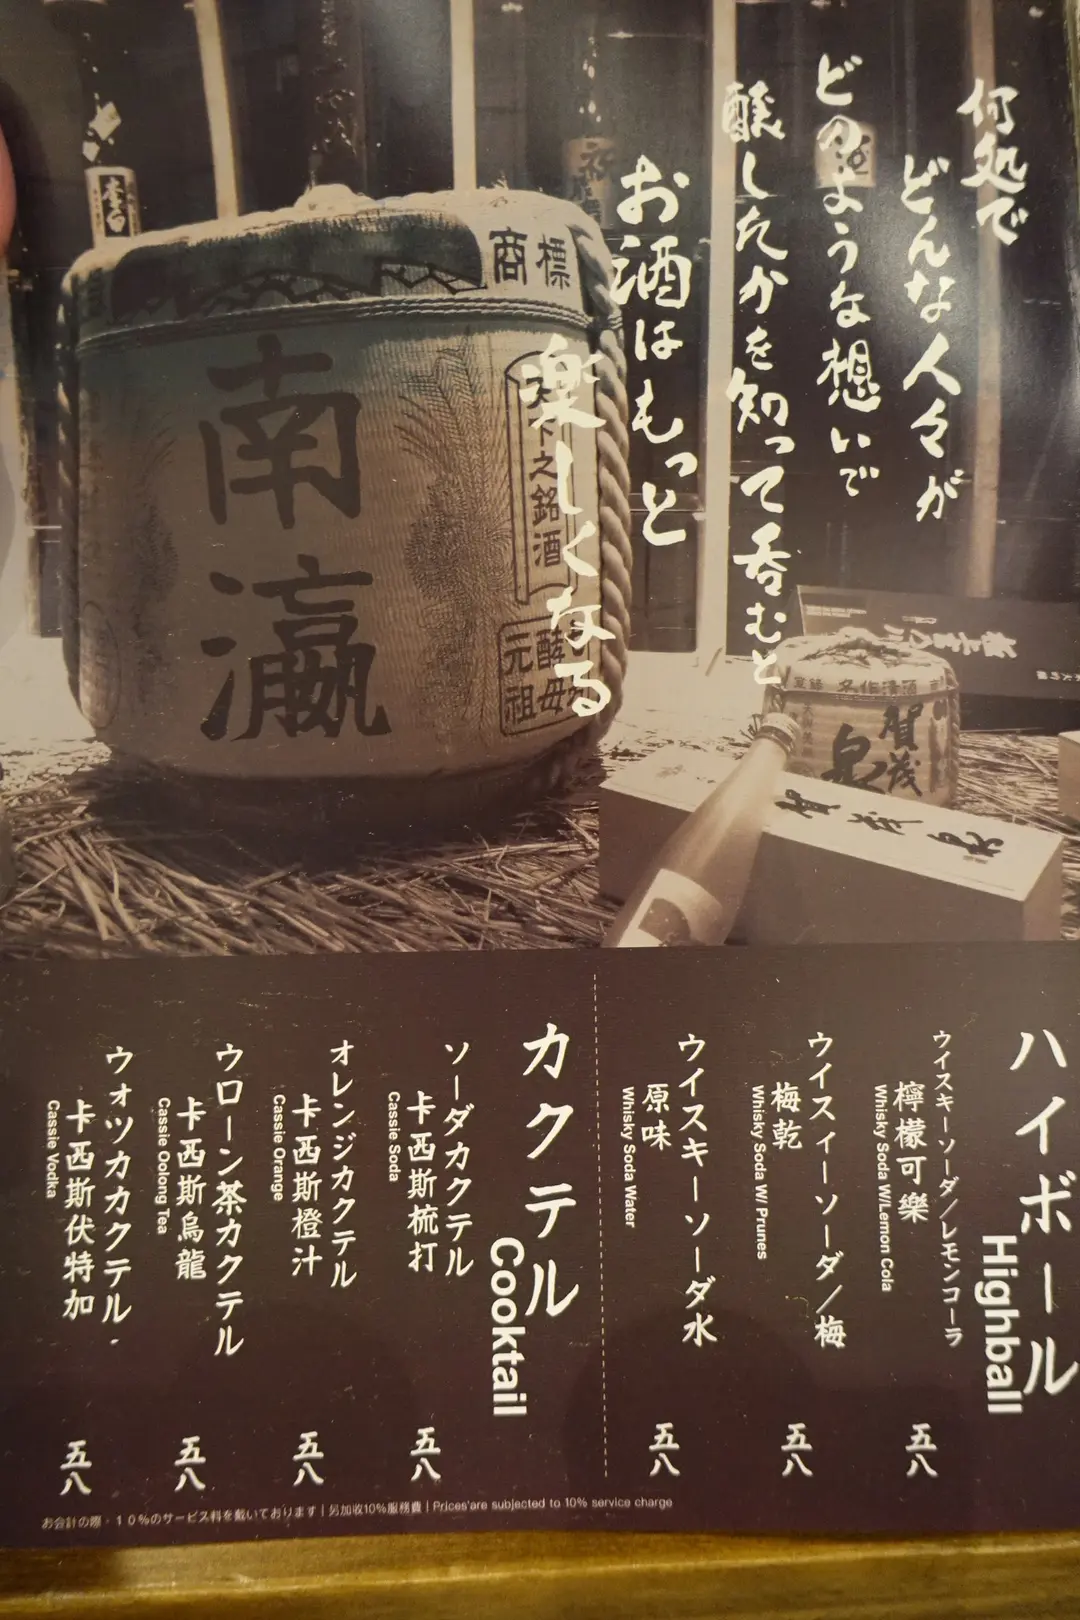 何処で
どんな人々が
どのような想いで
醸したかを知って呑むと
お酒はもっと
楽しくなる
商標
南瀛
之銘酒
元祖
酵母
名作清酒
賀茂
泉
ハイボール
Highball
ウイスキーソーダ／レモンコーラ
檸檬可樂
Whisky Soda W/Lemon Cola
五八
ウイスィーソーダ／梅
梅乾
Whisky Soda W/ Prunes
五八
ウイスキーソーダ水
原味
Whisky Soda Water
五八
カクテル
Cooktail
ソーダカクテル
卡西斯梳打
Cassie Soda
五八
オレンジカクテル
卡西斯橙汁
Cassie Orange
五八
ウローン茶カクテル
卡西斯烏龍
Cassie Oolong Tea
五八
ウォツカカクテル
卡西斯伏特加
Cassie Vodka
五八
お会計の際・１０％のサービス料を戴いております | 另加收10%服務費 | Prices'are subjected to 10% service charge